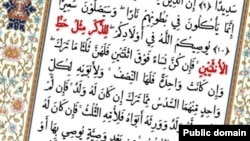 سَدِيدًا (٩) إِنَّ الَّذِينَ
إِنَّمَا يَأْكُلُونَ فِي بُطُونِهِمْ نَارًا وَسَيَصْلَوْنَ سَعِيرًا
(١٠) يُوصِيكُمُ اللَّهُ فِي أَوْلَادِكُمْ لِلذَّكَرِ مِثْلُ حَظِّ
الْأُنْثَيَيْنِ فَإِنْ كُنَّ نِسَاءً فَوْقَ اثْنَتَيْنِ فَلَهُنَّ ثُلُثَا مَا تَرَكَ
وَإِنْ كَانَتْ وَاحِدَةً فَلَهَا النِّصْفُ وَلِأَبَوَيْهِ لِكُلِّ
وَاحِدٍ مِنْهُمَا السُّدُسُ مِمَّا تَرَكَ إِنْ كَانَ لَهُ وَلَدٌ فَإِنْ لَمْ
لَهُ وَلَدٌ وَوَرِثَهُ أَبَوَاهُ فَلِأُمِّهِ الثُّلُثُ فَإِنْ كَانَ لَهُ
بَعْدِ وَصِيَّةٍ يُوصِي بِهَا أَوْ
Public domain